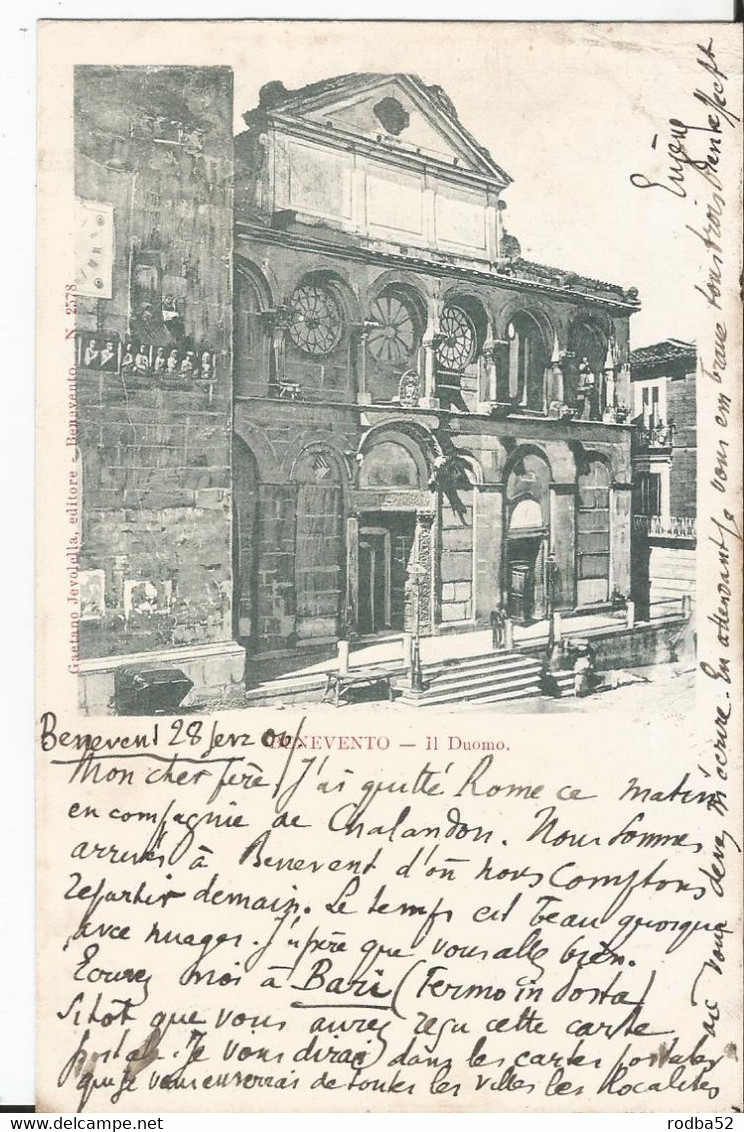 Gaetano Jevolella, editore - Benevento N. 2578.
BENEVENTO — Il Duomo.
Benevent 28 fevr 04
Mon cher père, J'ai quitté Rome ce matin
en compagnie de Chalandon. Nous sommes
arrivés à Benevent d'où nous comptons
repartir demain. Le temps est beau quoique
avec nuages. J'espère que vous allez bien.
Ecrivez moi à Bari (Fermo in posta)
sitôt que vous aurez reçu cette carte
postale. Je vous dirai dans les cartes postales
que je vous enverrai de toutes les villes les localités
où vous devez m'écrire. En attendant je vous embrasse tous trois bien affect
Eugène
http://www.delcampe.net
rodba52